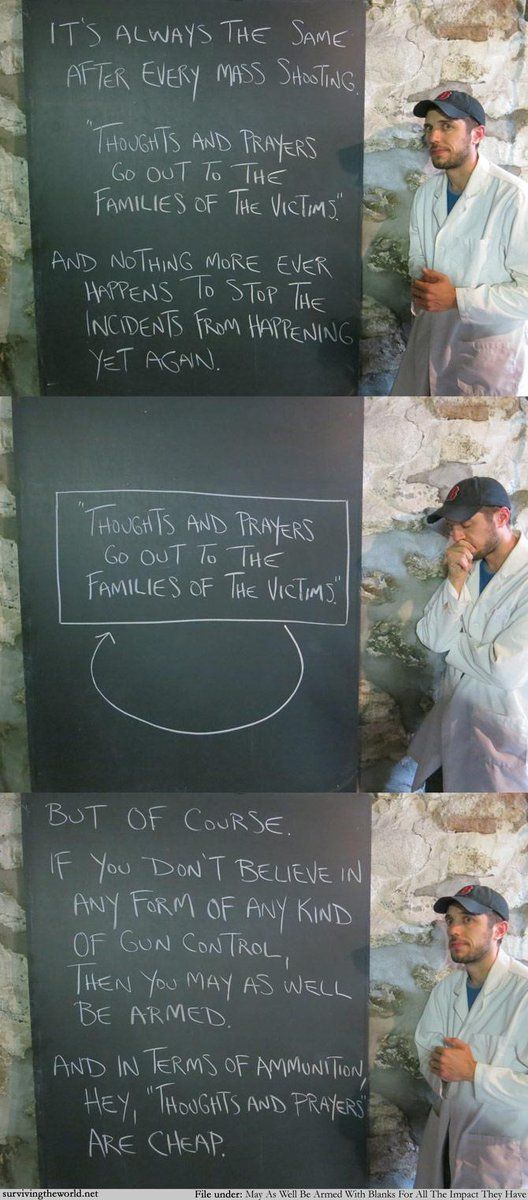 IT'S ALWAYS THE SAME
AFTER EVERY MASS SHOOTING.
"THOUGHTS AND PRAYERS
GO OUT TO THE
FAMILIES OF THE VICTIMS."
AND NOTHING MORE EVER
HAPPENS TO STOP THE
INCIDENTS FROM HAPPENING
YET AGAIN.
"THOUGHTS AND PRAYERS
GO OUT TO THE
FAMILIES OF THE VICTIMS."
BUT OF COURSE.
IF YOU DON'T BELIEVE IN
ANY FORM OF ANY KIND
OF GUN CONTROL,
THEN YOU MAY AS WELL
BE ARMED.
AND IN TERMS OF AMMUNITION,
HEY, "THOUGHTS AND PRAYERS"
ARE CHEAP.
survivingtheworld.net
File under: May As Well Be Armed With Blanks For All The Impact They Have